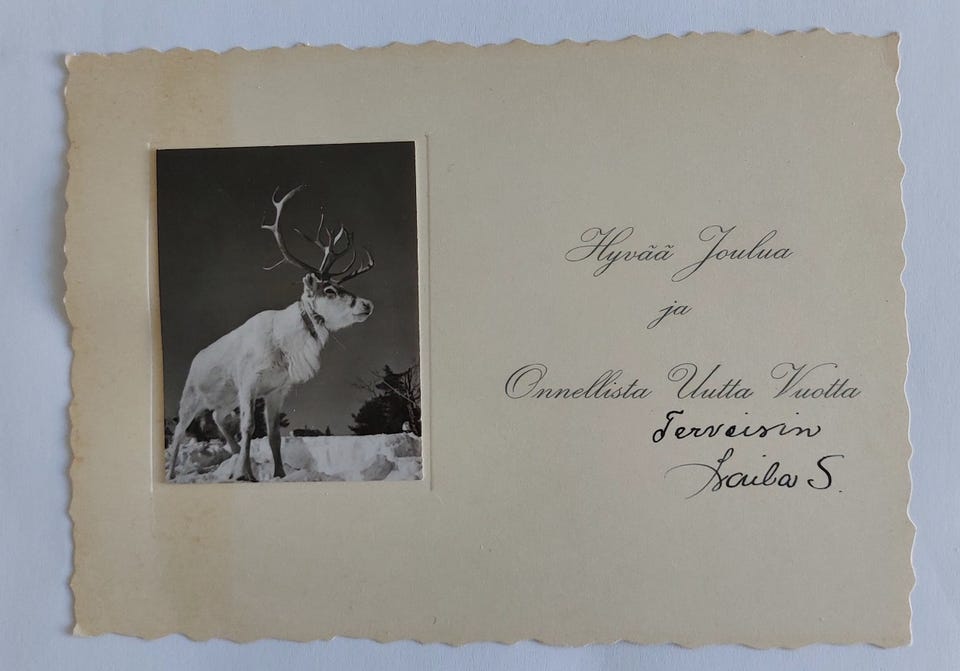 Hyvää Joulua
ja
Onnellista Uutta Vuotta
Terveisin
Laila S.